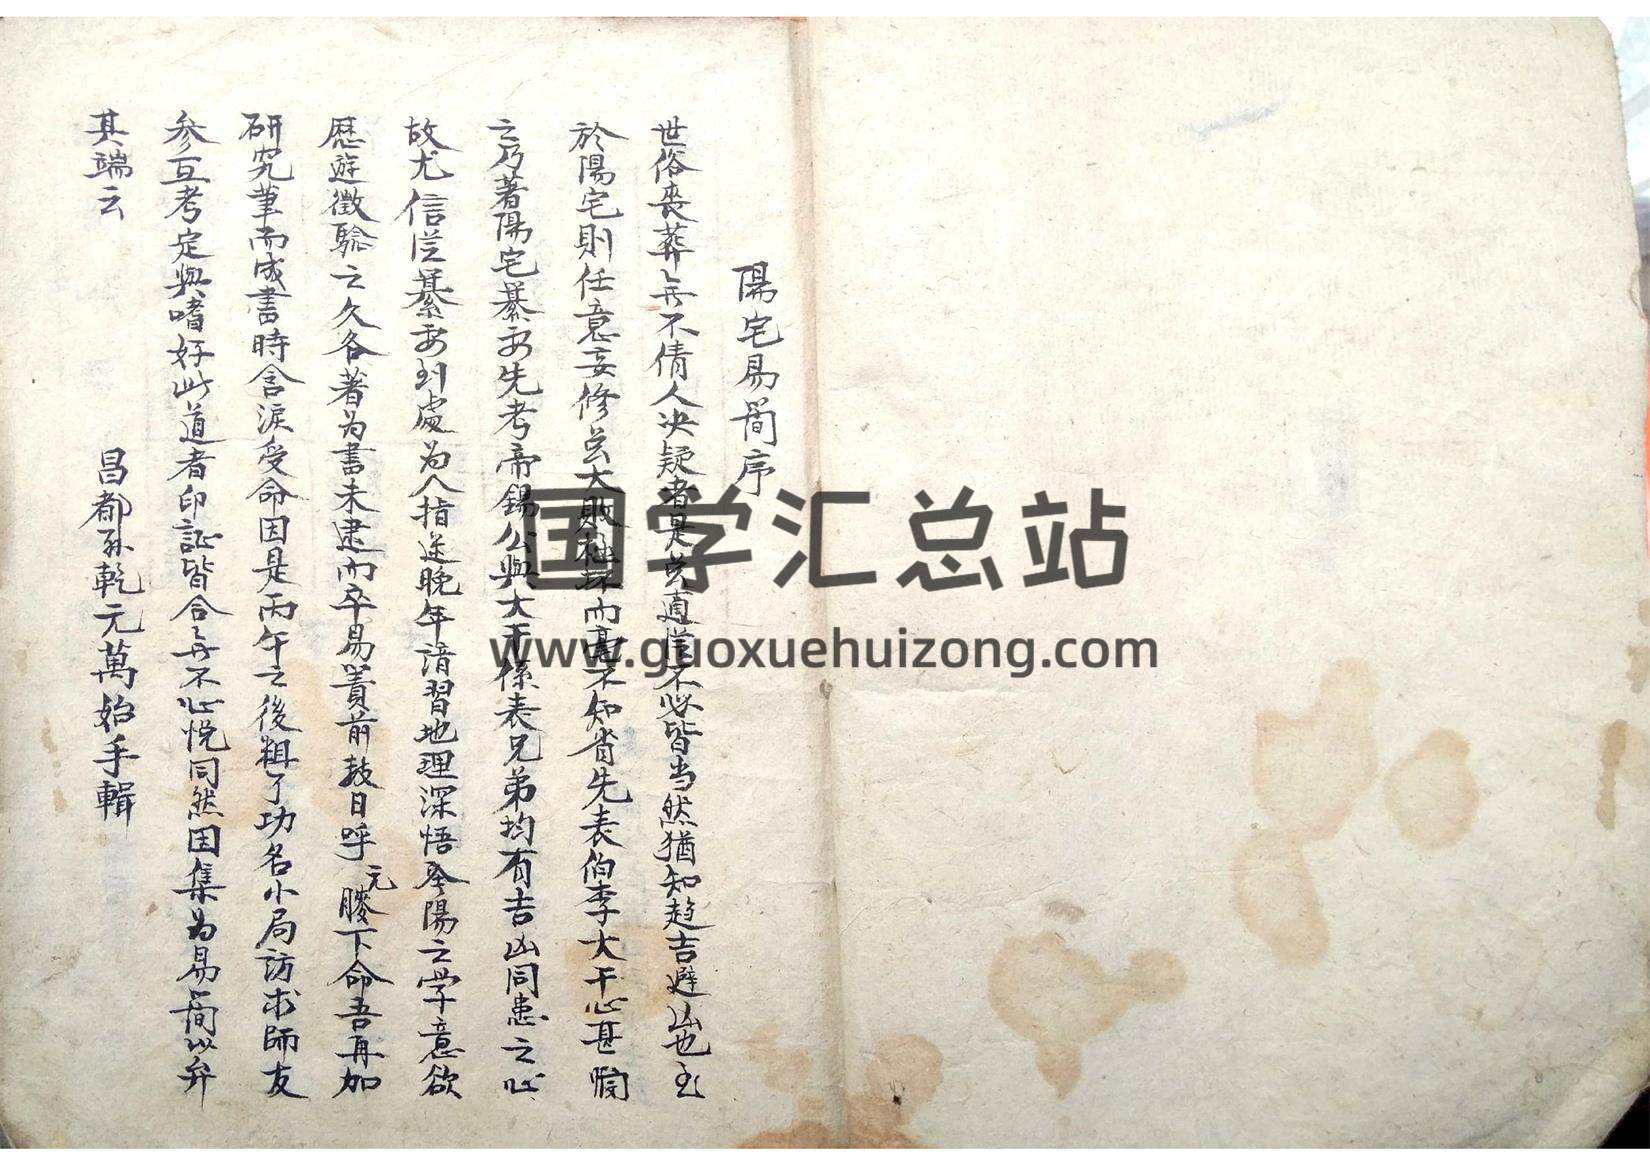 陽宅易簡序
世俗喪葬無不倩人决疑者是其道雖不必皆当然猶知趋吉避凶也至
於陽宅則任意妄修其大敗而不知省先表伯李大干心甚憫
之乃著陽宅纂要先考帝錫公與大干係表兄弟均有吉凶同患之心
故尤信從纂要到處為人指迷晚年請習地理深悟陰陽之学意欲
歷遊徵驗之久各著為書未逮而卒易簀前数日呼元膝下命吾再加
研究筆而成書時含淚受命因是丙午之後粗了功名小局訪求師友
参互考定與嗜好此道者印証皆合無不心悦同然因集為易簡以弁
其端云
昌都孫乾元萬始手輯
国学汇总站
www.guoxuehuizong.com